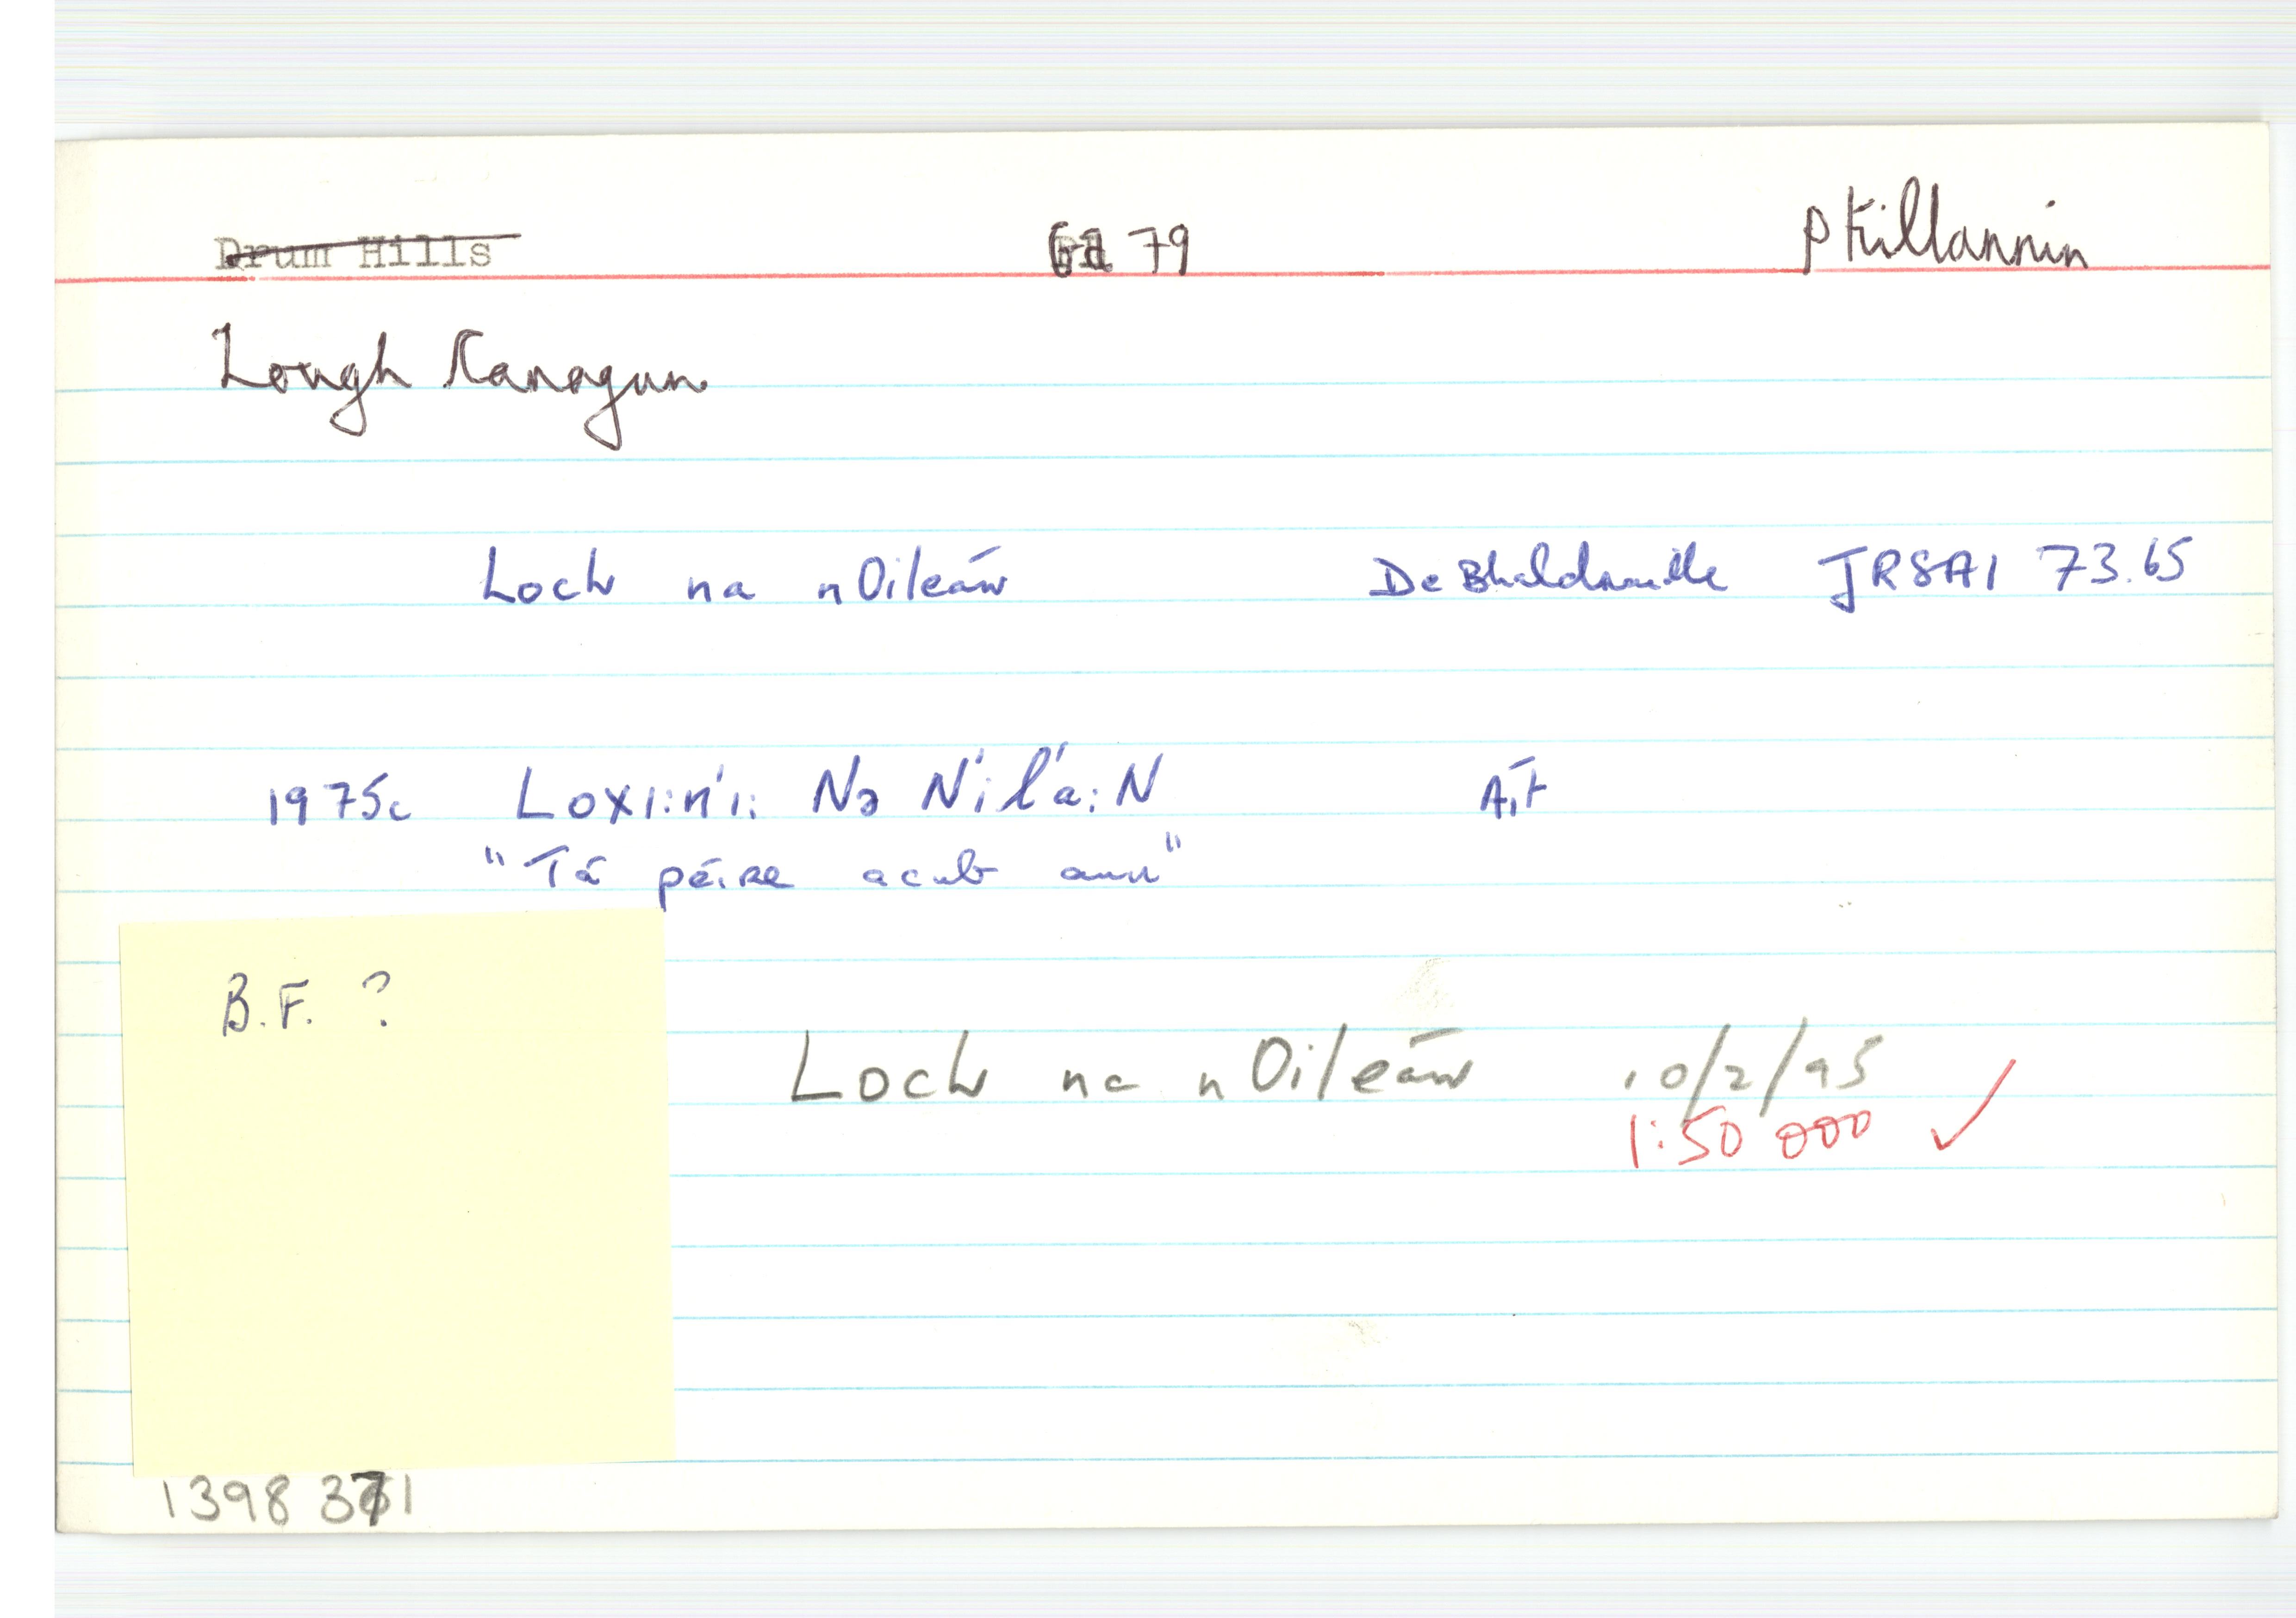 Drum Hills Ga 79 p Killannin
Lough Nanogun
Loch na nOileán De Bhaldraithe JRSAI 73.65
1975c Loxi:n'i: Nə N'il'a:N Áit
"Tá péire acub ann"
B.F. ?
Loch na nOileán 10/2/95
1:50 000 ✓
1398 371